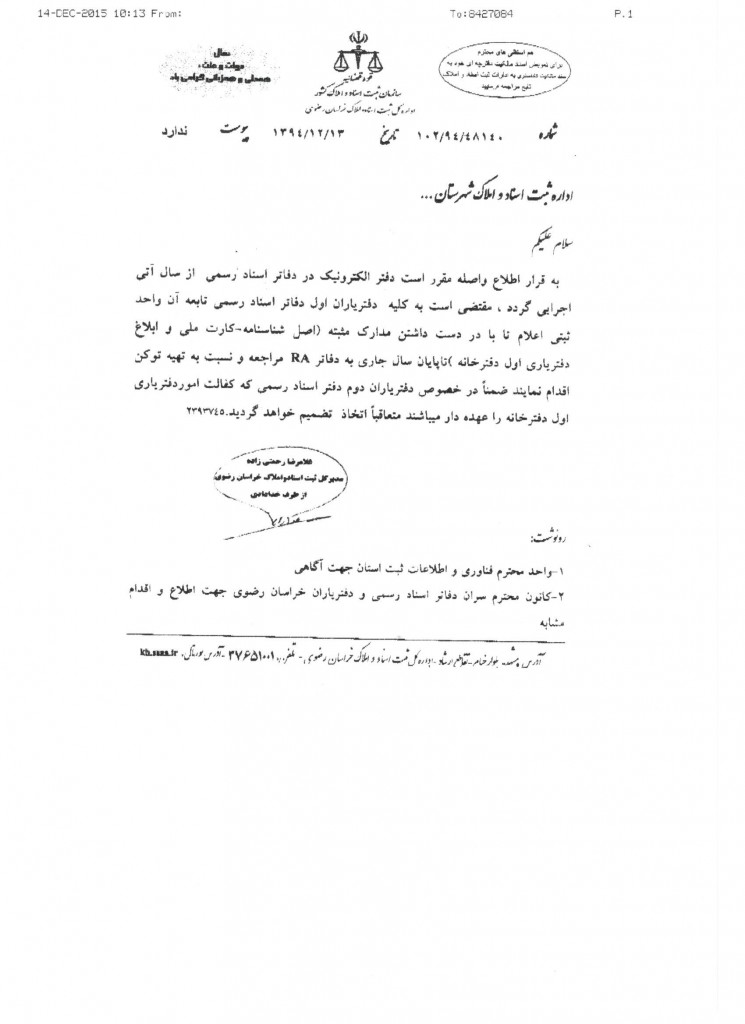 14-DEC-2015 10:13 From: To:8427084 P.1
سال
دولت و ملت،
همدلی و همزبانی گرامی باد
قوه قضاییه
سازمان ثبت اسناد و املاک کشور
اداره کل ثبت اسناد و املاک خراسان رضوی
هم استانی های محترم
برای تعویض اسناد مالکیت دفترچه ای خود به
سند مالکیت تک‌برگی به ادارات ثبت اسناد و املاک
مراجعه فرمایید
شماره ۱۰۲/۹۴/۴۸۱۴۰ تاریخ ۱۳۹۴/۱۲/۱۳ پیوست ندارد
اداره ثبت اسناد و املاک شهرستان ...
سلام علیکم
به قرار اطلاع واصله مقرر است دفتر الکترونیک در دفاتر اسناد رسمی از سال آتی
اجرایی گردد ، مقتضی است به کلیه دفتریاران اول دفاتر اسناد رسمی تابعه آن واحد
ثبتی اعلام تا با در دست داشتن مدارک مثبته (اصل شناسنامه-کارت ملی و ابلاغ
دفتریاری اول دفترخانه )تاپایان سال جاری به دفاتر RA مراجعه و نسبت به تهیه توکن
اقدام نمایند ضمناً در خصوص دفتریاران دوم دفتر اسناد رسمی که کفالت اموردفتریاری
اول دفترخانه را عهده دار میباشند متعاقباً اتخاذ تضمیم خواهد گردید.۲۳۹۳۷۴۵
غلامرضا رحمتی زاده
مدیرکل ثبت اسنادواملاک خراسان رضوی
از طرف خدادادی
رونوشت:
۱-واحد محترم فناوری و اطلاعات ثبت استان جهت آگاهی
۲-کانون محترم سران دفاتر اسناد رسمی و دفتریاران خراسان رضوی جهت اطلاع و اقدام
مشابه
آدرس مشهد- بلوار خیام-تقاطع ارشاد-اداره کل ثبت اسناد و املاک خراسان رضوی - تلفن ۳۷۶۵۱۰۰۱ -آدرس پورتال: